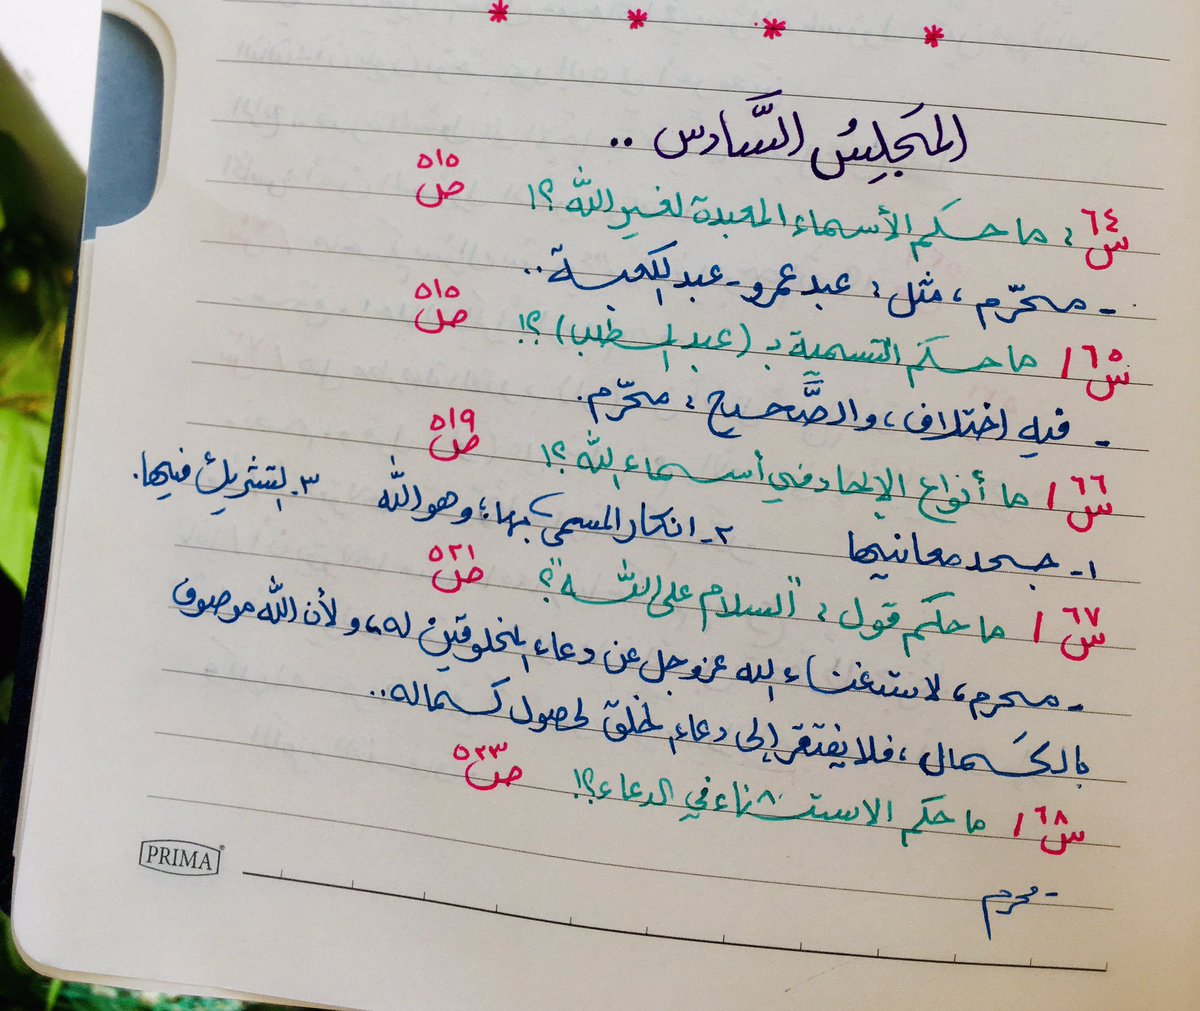 المَجلِسُ السَّادس ..
س٦٤ : ما حكم الأسماء المعبدة لغير الله ؟! ص٥١٥
- محرّم ، مثل : عبد عمرو - عبد الكعبة ..
س٦٥ / ما حكم التسمية بـ (عبد المطلب) ؟! ص٥١٥
- فيه اختلاف ، والصَّحيح : محرّم .
س٦٦ / ما أنواع الإلحاد في أسماء الله ؟! ص٥١٩
١- جحد معانيها ٢- انكار المسمى بها ؛ وهو الله ٣- التشريك فيها.
س٦٧ / ما حكم قول : "السلام على الله" ؟ ص٥٢١
- محرم ، لاستغناء الله عز وجل عن دعاء المخلوقين له ، ولأن الله موصوف
بالكَمال ، فلا يفتقر إلى دعاء الخلق لحصول كماله ..
س٦٨ / ما حكم الاستثناء في الدعاء ؟! ص٥٢٣
- محرم
PRIMA